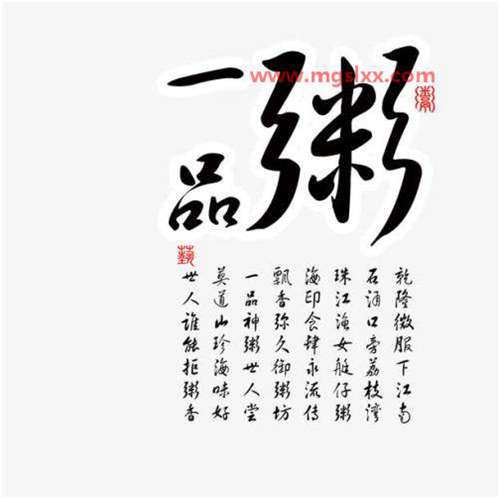 www.mgslxx.com
一品
粥
乾隆微服下江南
石涌口旁荔枝湾
珠江渔女艇仔粥
海印食肆永流传
飘香弥久御粥坊
一品神粥世人尝
莫道山珍海味好
世人谁能拒粥香